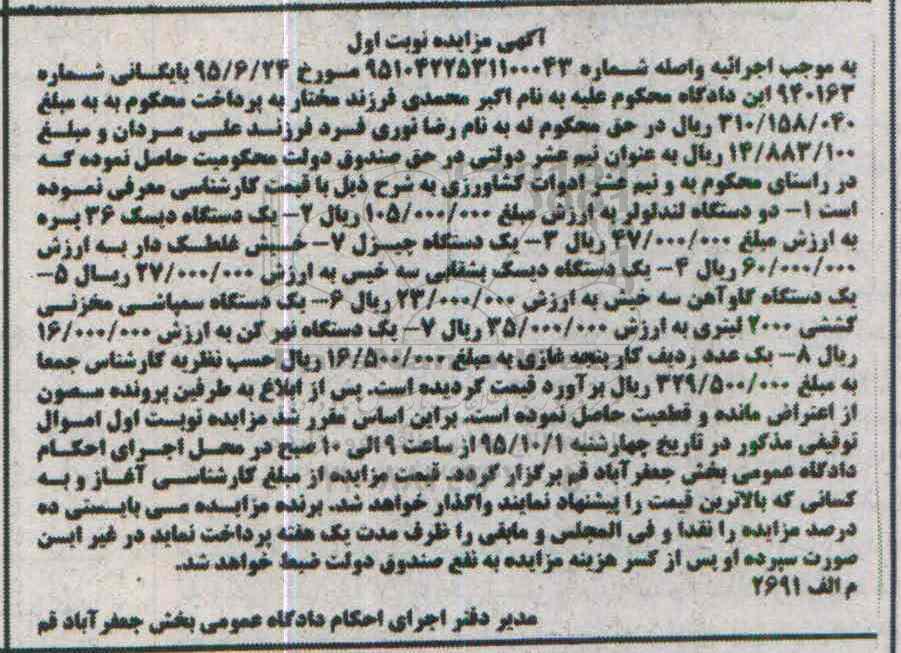 آگهی مزایده نوبت اول
به موجب اجرائیه واصله شماره ۹۵۱۰۴۲۲۵۳۱۱۰۰۰۴۳ مورخ ۹۵/۶/۲۴ بایگانی شماره
۹۴۰۱۶۳ این دادگاه محکوم علیه به نام اکبر محمدی فرزند مختار به پرداخت محکوم به به مبلغ
۳۱۰/۱۵۸/۰۴۰ ریال در حق محکوم له به نام رضا نوری فرد فرزند علی مردان و مبلغ
۱۴/۸۸۳/۱۰۰ ریال به عنوان نیم عشر دولتی در حق صندوق دولت محکومیت حاصل نموده که
در راستای محکوم به و نیم عشر ادوات کشاورزی به شرح ذیل با قیمت کارشناسی معرفی نموده
است ۱- دو دستگاه لندلولر به ارزش مبلغ ۱۰۵/۰۰۰/۰۰۰ ریال ۲- یک دستگاه دیسک ۳۶ پره
به ارزش مبلغ ۴۷/۰۰۰/۰۰۰ ریال ۳- یک دستگاه چیزل ۷- خیش غلطک دار به ارزش
۶۰/۰۰۰/۰۰۰ ریال ۴- یک دستگاه دیسک بشقابی سه خیس به ارزش ۲۷/۰۰۰/۰۰۰ ریال ۵-
یک دستگاه گاوآهن سه خیش به ارزش ۲۳/۰۰۰/۰۰۰ ریال ۶- یک دستگاه سمپاشی مخزنی
کششی ۲۰۰۰ لیتری به ارزش ۳۵/۰۰۰/۰۰۰ ریال ۷- یک دستگاه نهر کن به ارزش ۱۶/۰۰۰/۰۰۰
ریال ۸- یک عدد ردیف کار پنجه غازی به مبلغ ۱۶/۵۰۰/۰۰۰ ریال حسب نظریه کارشناس جمعا
به مبلغ ۳۲۹/۵۰۰/۰۰۰ ریال برآورد قیمت گردیده است. پس از ابلاغ به طرفین پرونده مصون
از اعتراض مانده و قطعیت حاصل نموده است. براین اساس مقرر شد مزایده نوبست اول اموال
توقیفی مذکور در تاریخ چهارشنبه ۹۵/۱۰/۱ از ساعت ۹ الی ۱۰ صبح در محل اجرای احکام
دادگاه عمومی بخش جعفرآباد قم برگزار گردد. قیمت مزایده از مبلغ کارشناسی آغاز و به
کسانی که بالاترین قیمت را پیشنهاد نمایند واگذار خواهد شد. برنده مزایده می بایستی ده
درصد مزایده را نقدا و فی المجلس و مابقی را ظرف مدت یک هفته پرداخت نماید در غیر این
صورت سپرده او پس از کسر هزینه مزایده به نفع صندوق دولت ضبط خواهد شد.
م الف ۲۶۹۱
مدیر دفتر اجرای احکام دادگاه عمومی بخش جعفرآباد قم